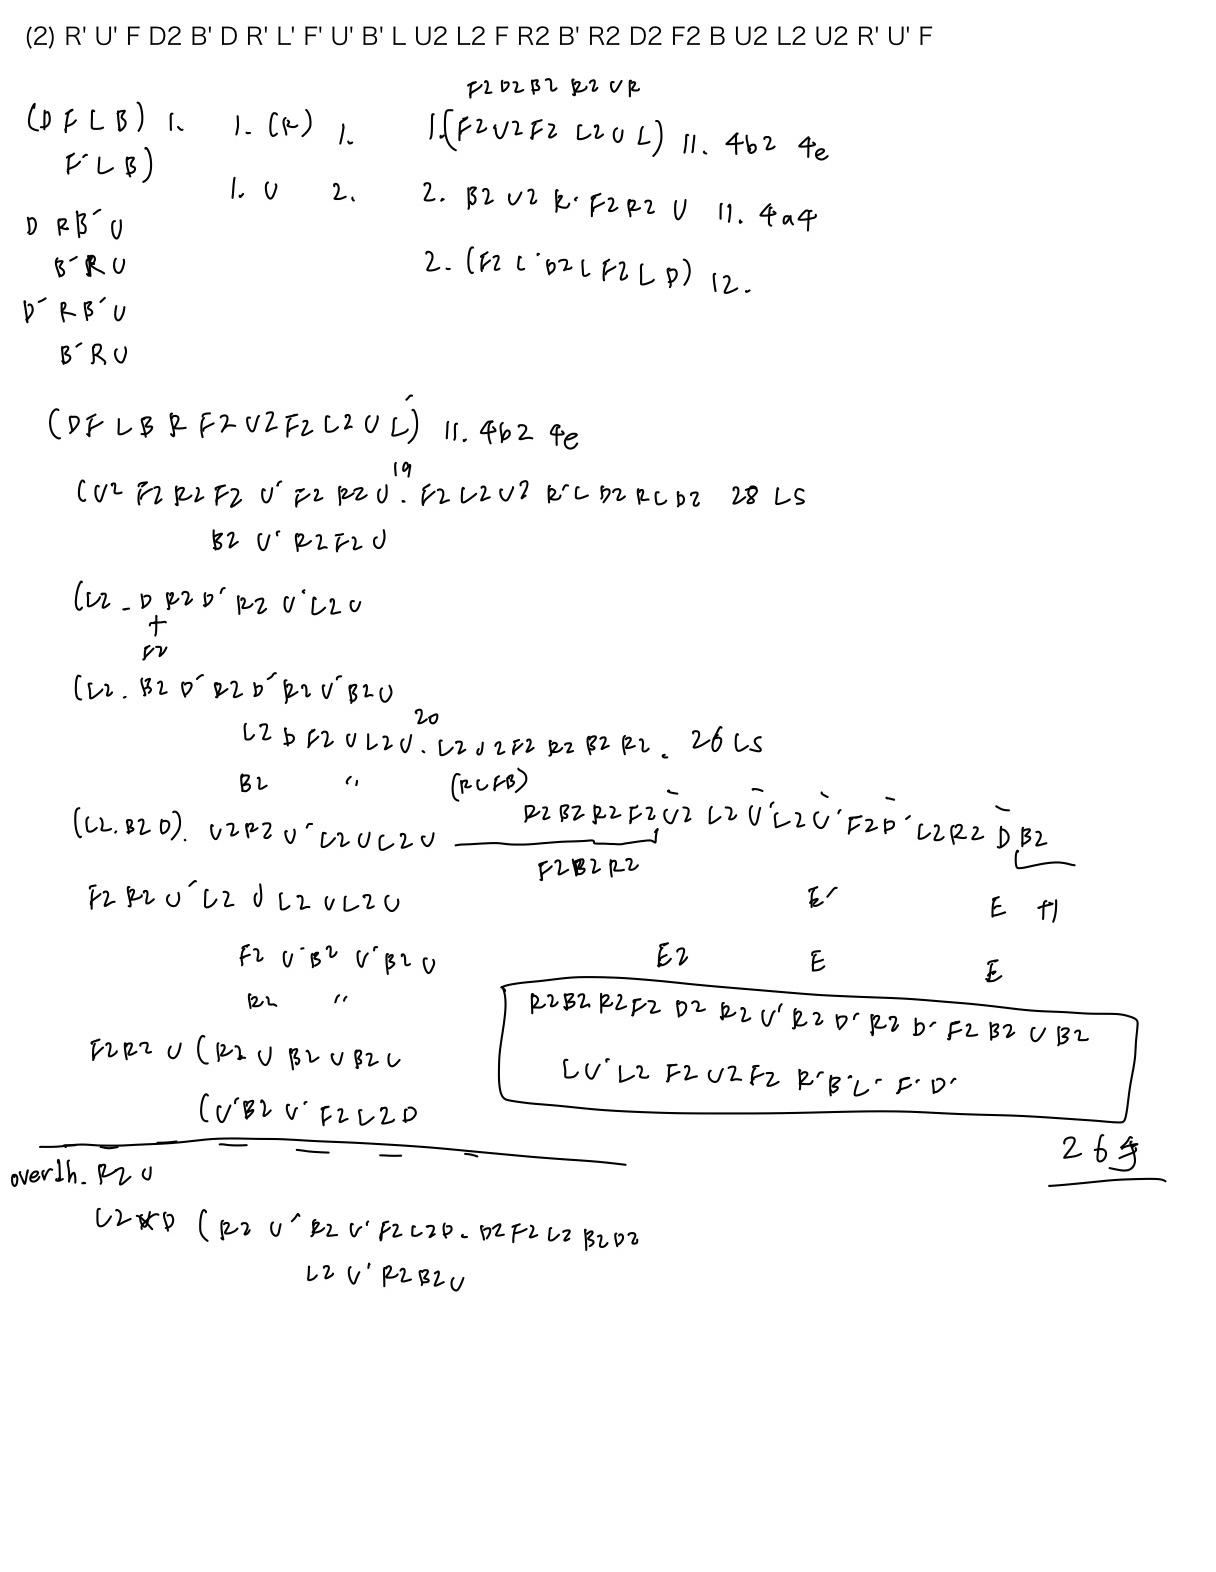 (2) R' U' F D2 B' D R' L' F' U' B' L U2 L2 F R2 B' R2 D2 F2 B U2 L2 U2 R' U' F
F2 D2 B2 R2 U R
(D F L B) 1. 1. (R) 1. 1. (F2 U2 F2 L2 U L) 11. 4b2 4e
F' L B)
1. U 2. 2. B2 U2 R' F2 R2 U 11. 4a4
D R B' U
B' R U
2. (F2 L' D2 L F2 L D) 12.
D' R B' U
B' R U
(D F L B R F2 U2 F2 L2 U L') 11. 4b2 4e
19
(U2 F2 R2 F2 U' F2 R2 U . F2 L2 U2 R' L D2 R L D2 28 LS
B2 U' R2 F2 U
(L2 - D R2 D' R2 U' L2 U
+
F2
(L2 . B2 D' R2 D' R2 U' B2 U
20
L2 D F2 U L2 U . L2 U2 F2 R2 B2 R2 . 26 LS
B2 〃 (RLFB)
(L2 . B2 D) . U2 R2 U' L2 U L2 U R2 B2 R2 F2 U2 L2 U' L2 U' F2 D' L2 R2 D B2
F2 B2 R2
F2 R2 U' L2 U L2 U L2 U E' E +1
F2 U' B2 U' B2 U E2 E E
R2 〃
R2 B2 R2 F2 D2 R2 U' R2 D' R2 D' F2 B2 U B2
F2 R2 U (R2 U B2 U B2 U
L U' L2 F2 U2 F2 R' B' L' F' D'
(U' B2 U' F2 L2 D
26手
overth. R2 U
L2 D (R2 U' R2 U' F2 L2 D . D2 F2 L2 B2 D2
L2 U' R2 B2 U